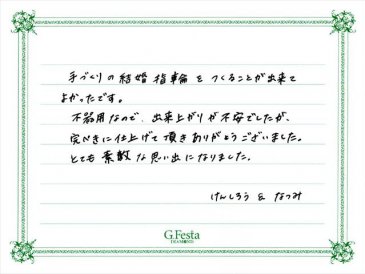 手づくりの結婚指輪をつくることが出来て
よかったです。
不器用なので、出来上がりが不安でしたが、
完ぺきに仕上げて頂きありがとうございました。
とても素敵な思い出になりました。
けんしろう & なつみ
G.Festa
DIAMOND